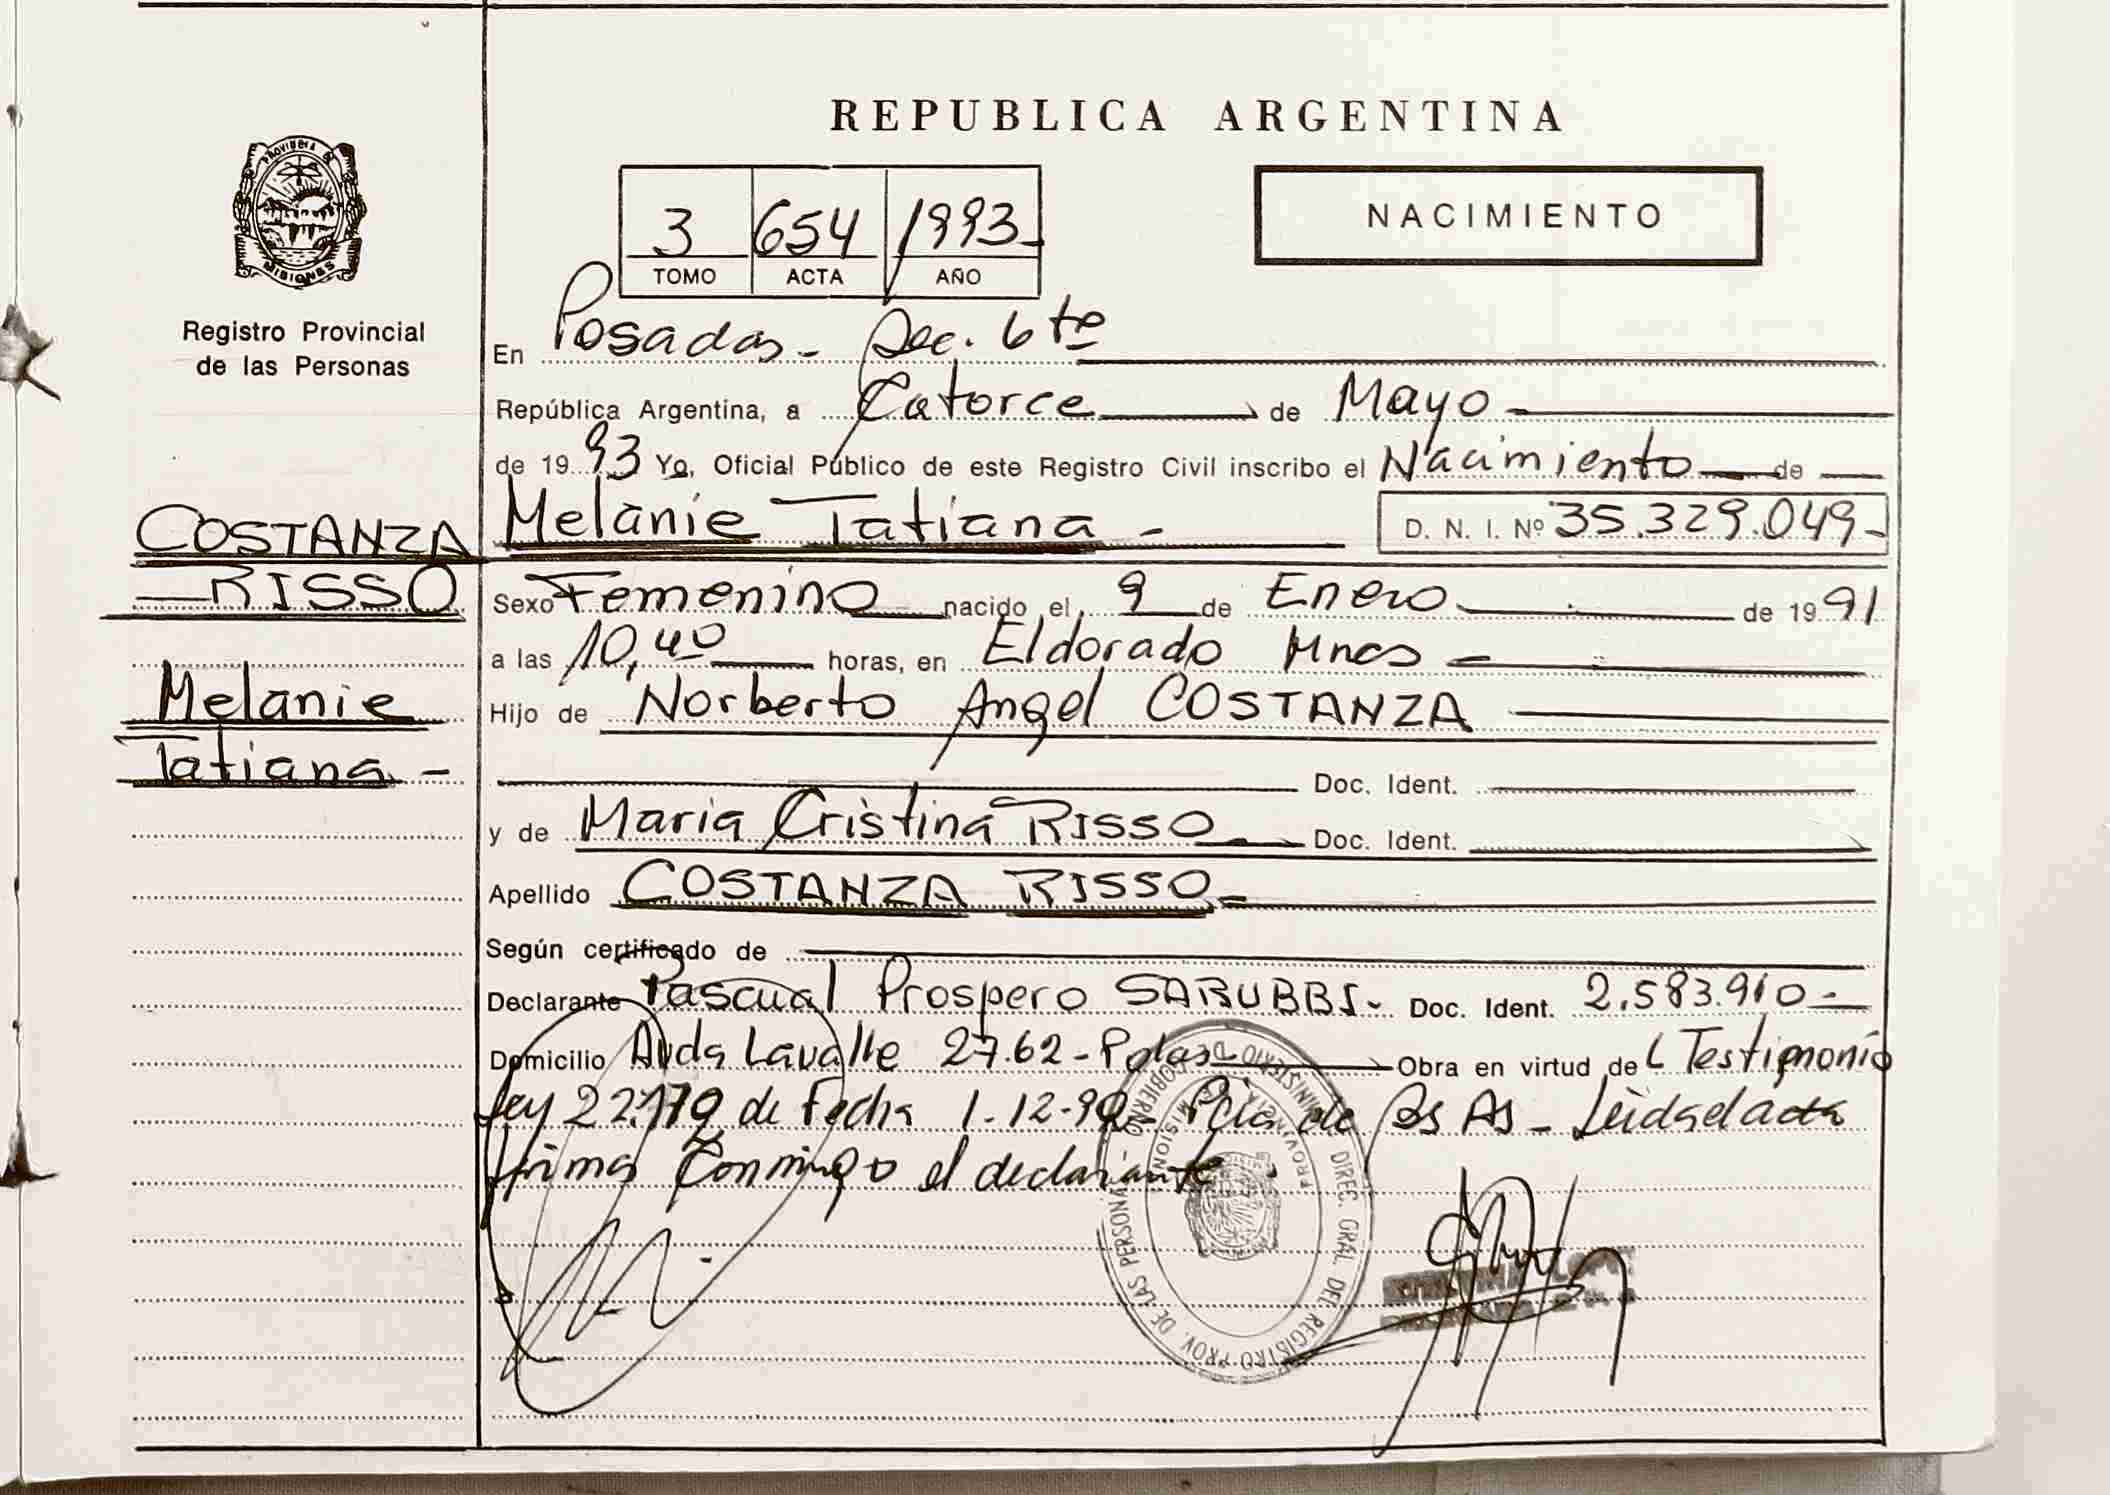 REPUBLICA ARGENTINA
PROVINCIA DE
MISIONES
Registro Provincial
de las Personas
3 654 1993
TOMO ACTA AÑO
NACIMIENTO
En Posadas - Sec. 6ta
República Argentina, a Catorce de Mayo
de 1993 Yo, Oficial Público de este Registro Civil inscribo el Nacimiento de
COSTANZA
RISSO
Melanie
Tatiana -
Melanie Tatiana - D. N. I. Nº 35.329.049-
Sexo Femenino nacido el 9 de Enero de 1991
a las 10,40 horas, en Eldorado Mnes -
Hijo de Norberto Angel COSTANZA
Doc. Ident.
y de Maria Cristina RISSO Doc. Ident.
Apellido COSTANZA RISSO -
Según certificado de
Declarante Pascual Prospero SARUBBI - Doc. Ident. 2.583.910 -
Domicilio Avda Lavalle 2762 - Pdas Obra en virtud de Testimonio
Ley 22.179 de Fecha 1-12-92 - Pcia de Bs As - Leida el acta
firma Conmigo el declarante
MINISTERIO DE GOBIERNO - DIREC. GRAL. DEL REGISTRO PROV. DE LAS PERSONAS
PROVINCIA DE MISIONES